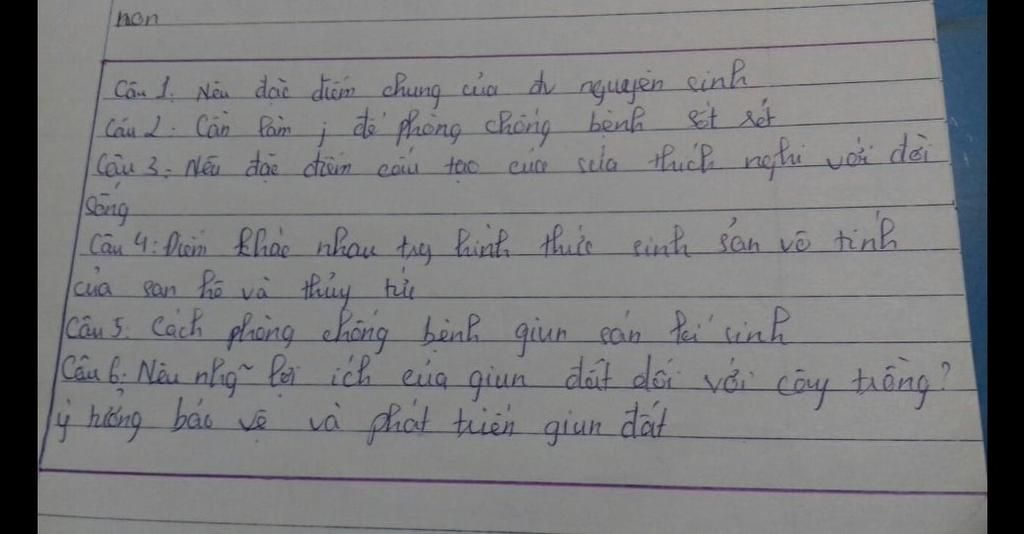 non
Câu 1. Nêu đặc điểm chung của đv nguyên sinh
Câu 2. Cần làm j để phòng chống bệnh sốt rét
Câu 3. Nêu đặc điểm cấu tạo của sứa thích nghi với đời
sống
Câu 4: Điểm khác nhau trg hình thức sinh sản vô tính
của san hô và thủy tức
Câu 5. Cách phòng chống bệnh giun sán kí sinh
Câu 6: Nêu nhg~ lợi ích của giun đất đối với cây trồng?
ý tưởng bảo vệ và phát triển giun đất